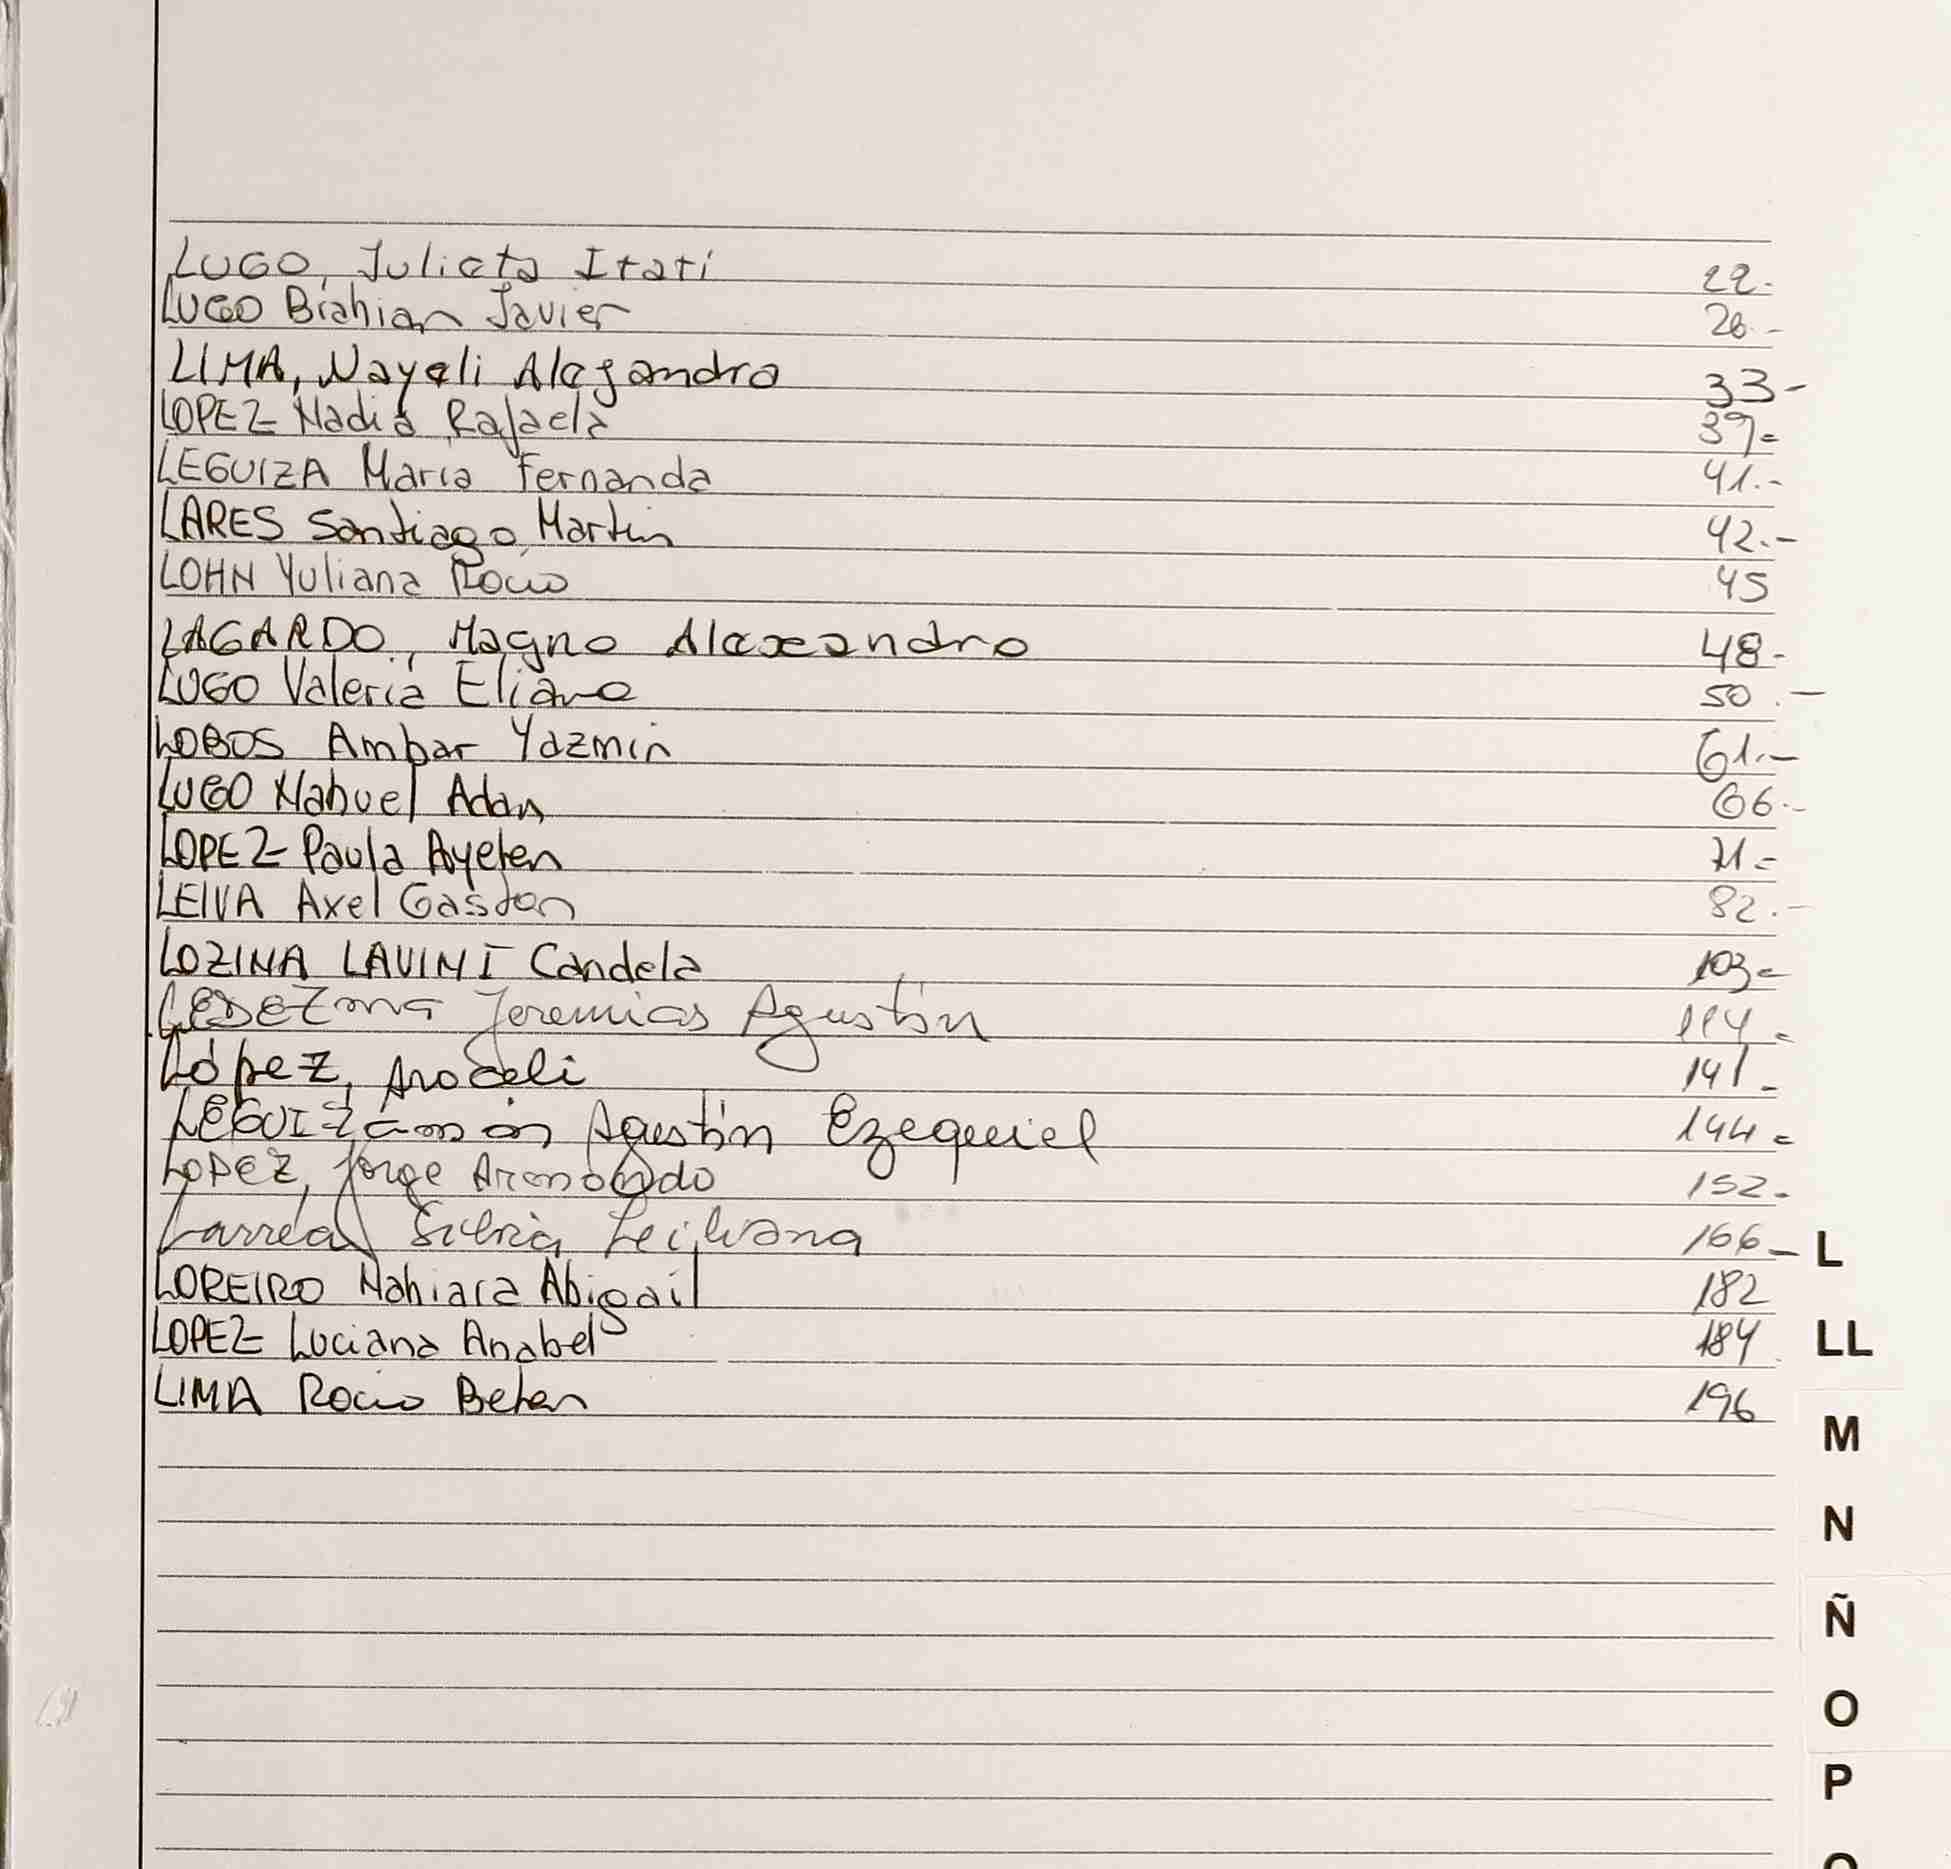 LUGO, Julieta Itatí 22.-
LUGO Brahian Javier 26.-
LIMA, Nayeli Alejandra 33-
LOPEZ Nadia Rafaela 39=
LEGUIZA Maria Fernanda 41.-
LARES Santiago Martin 42.-
LOHN Yuliana Rocio 45
LAGARDO, Magno Alexandro 48-
LUGO Valeria Eliana 50.-
LOBOS Ambar Yazmin 61.-
LUGO Nahuel Adan 66.-
LOPEZ Paula Ayelen 71-
LEIVA Axel Gaston 82.-
LOZINA LAVINI Candela 103=
LEDEZMA Jeremias Agustín 114=
López, Araceli 141-
LEGUIZamón Agustín Ezequiel 144=
LOPEZ, Jorge Armando 152-
Larrea Silvia 166-
LOREIRO Nahiara Abigail 182
LOPEZ Luciana Anabel 184
LIMA Rocio Belen 196
L
LL
M
N
Ñ
O
P